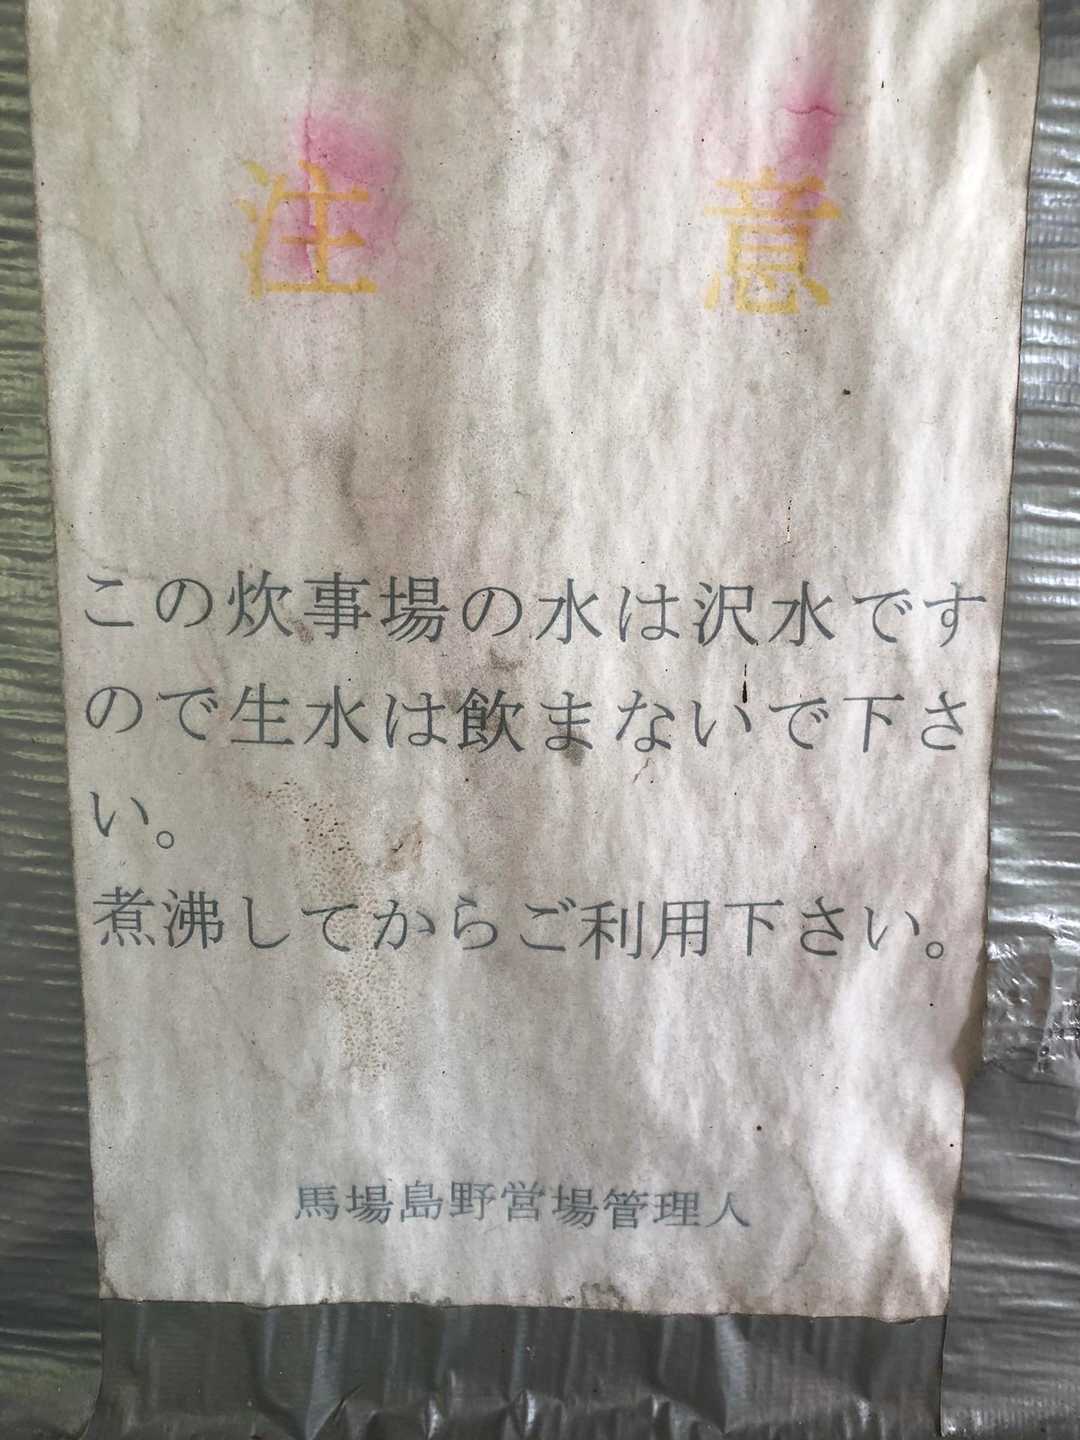 注意
この炊事場の水は沢水です
ので生水は飲まないで下さ
い。
煮沸してからご利用下さい。
馬場島野営場管理人